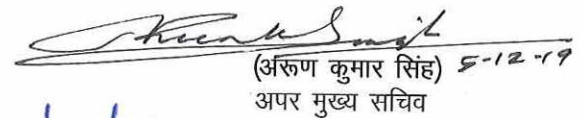 (अरूण कुमार सिंह) 5-12-19
अपर मुख्य सचिव